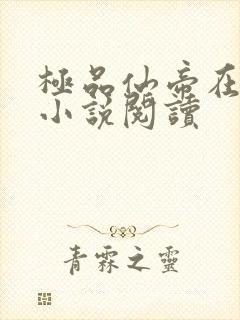 極品仙帝在
小說閱讀
青霖之靈